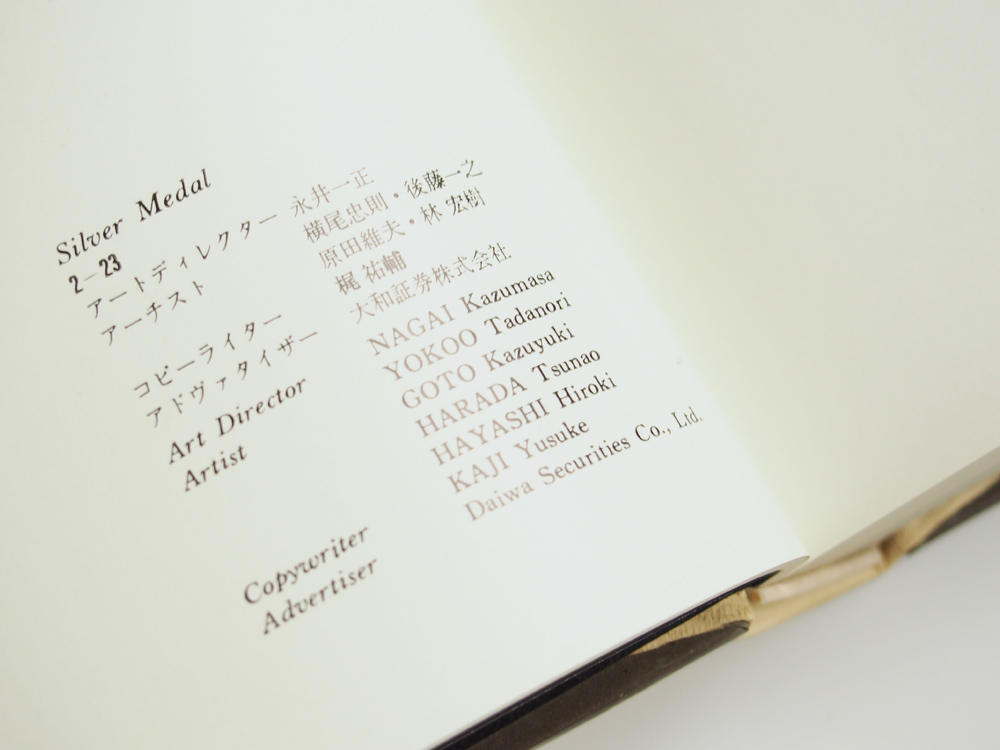 Silver Medal
2-23
アートディレクター 永井一正
アーチスト 横尾忠則・後藤一之
原田維夫・林 宏樹
コピーライター 梶 祐輔
アドヴァタイザー 大和証券株式会社
Art Director NAGAI Kazumasa
Artist YOKOO Tadanori
GOTO Kazuyuki
HARADA Tsunao
HAYASHI Hiroki
Copywriter KAJI Yusuke
Advertiser Daiwa Securities Co., Ltd.